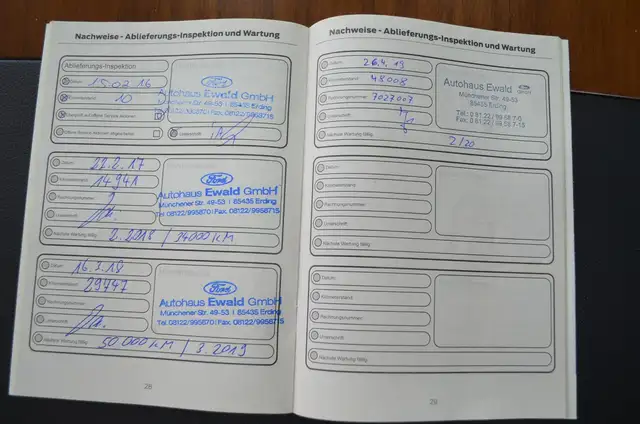 Nachweise - Ablieferungs-Inspektion und Wartung
Ablieferungs-Inspektion
Datum
15.02.16
Kilometerstand
10
Unterschrift
Ford
Autohaus Ewald GmbH
Münchener Str. 49-53 | 85435 Erding
Tel. 08122/995670 | Fax. 08122/9956715
Datum
22.2.17
Kilometerstand
14941
Rechnungsnummer
Unterschrift
Nächste Wartung fällig
2.2018 / 34000 KM
Ford
Autohaus Ewald GmbH
Münchener Str. 49-53 | 85435 Erding
Tel. 08122/995670 | Fax. 08122/9956715
Datum
16.3.18
Kilometerstand
29747
Rechnungsnummer
Unterschrift
Nächste Wartung fällig
50 000 KM / 3.2019
Ford
Autohaus Ewald GmbH
Münchener Str. 49-53 | 85435 Erding
Tel. 08122/995670 | Fax. 08122/9956715
28
Nachweise - Ablieferungs-Inspektion und Wartung
Datum
26.4.19
Kilometerstand
48008
Rechnungsnummer
7027007
Unterschrift
Nächste Wartung fällig
2/20
Autohaus Ewald GmbH
Münchener Str. 49-53
85435 Erding
Tel.: 0 81 22 / 99 56 7-0
Fax: 0 81 22 / 99 56 7-15
Datum
Kilometerstand
Rechnungsnummer
Unterschrift
Nächste Wartung fällig
Datum
Kilometerstand
Rechnungsnummer
Unterschrift
Nächste Wartung fällig
29